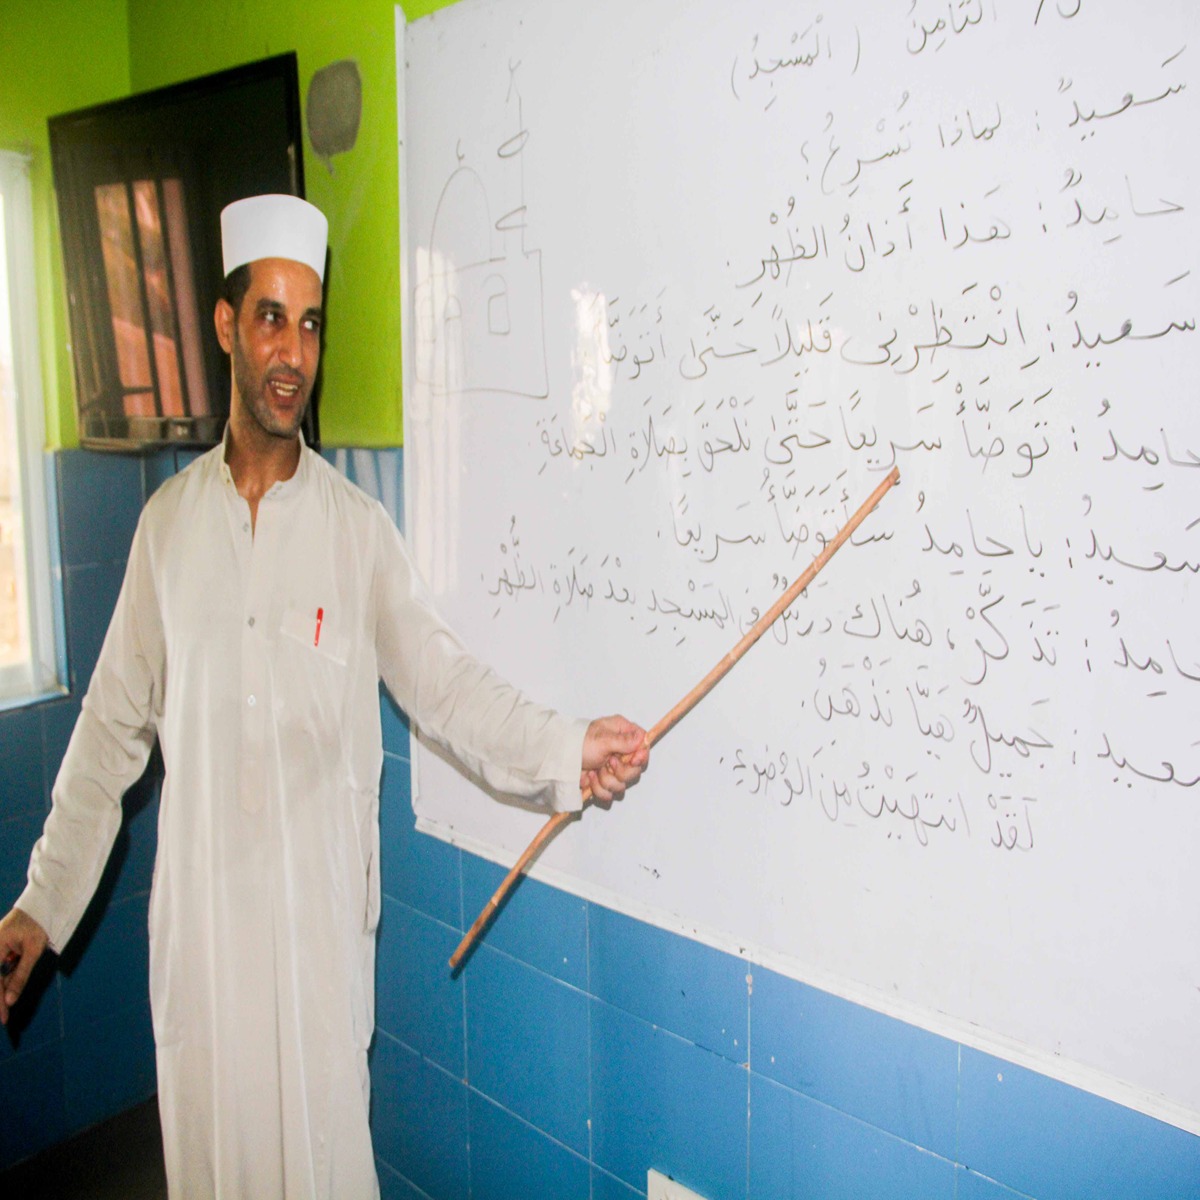 الثَّامِنُ (الْمَسْجِدُ)
سَعيدٌ: لماذا تُسْرِعُ؟
حامِدٌ: هَذا أَذانُ الظُهْرِ.
سَعيدُ: اِنْتَظِرْنِى قَلِيلاً حَتَّى أَتَوَضَّأَ.
حامِدُ: تَوَضَّأْ سَرِيعًا حَتَّى نَلْحَقَ بِصَلَاةِ الْجَماعَةِ.
سَعِيدُ: يا حامِدُ سَأَتَوَضَّأُ سَرِيعًا.
حامِدُ: تَذَكَّرْ، هُناك دَرْسٌ في المَسْجِدِ بعْدَ صَلَاةِ الظُّهْرِ.
سَعيد: جَمِيلٌ هَيَّا نَذْهَبُ.
لَقَدْ انتهَيْتُ مِنَ الوُضوءِ.